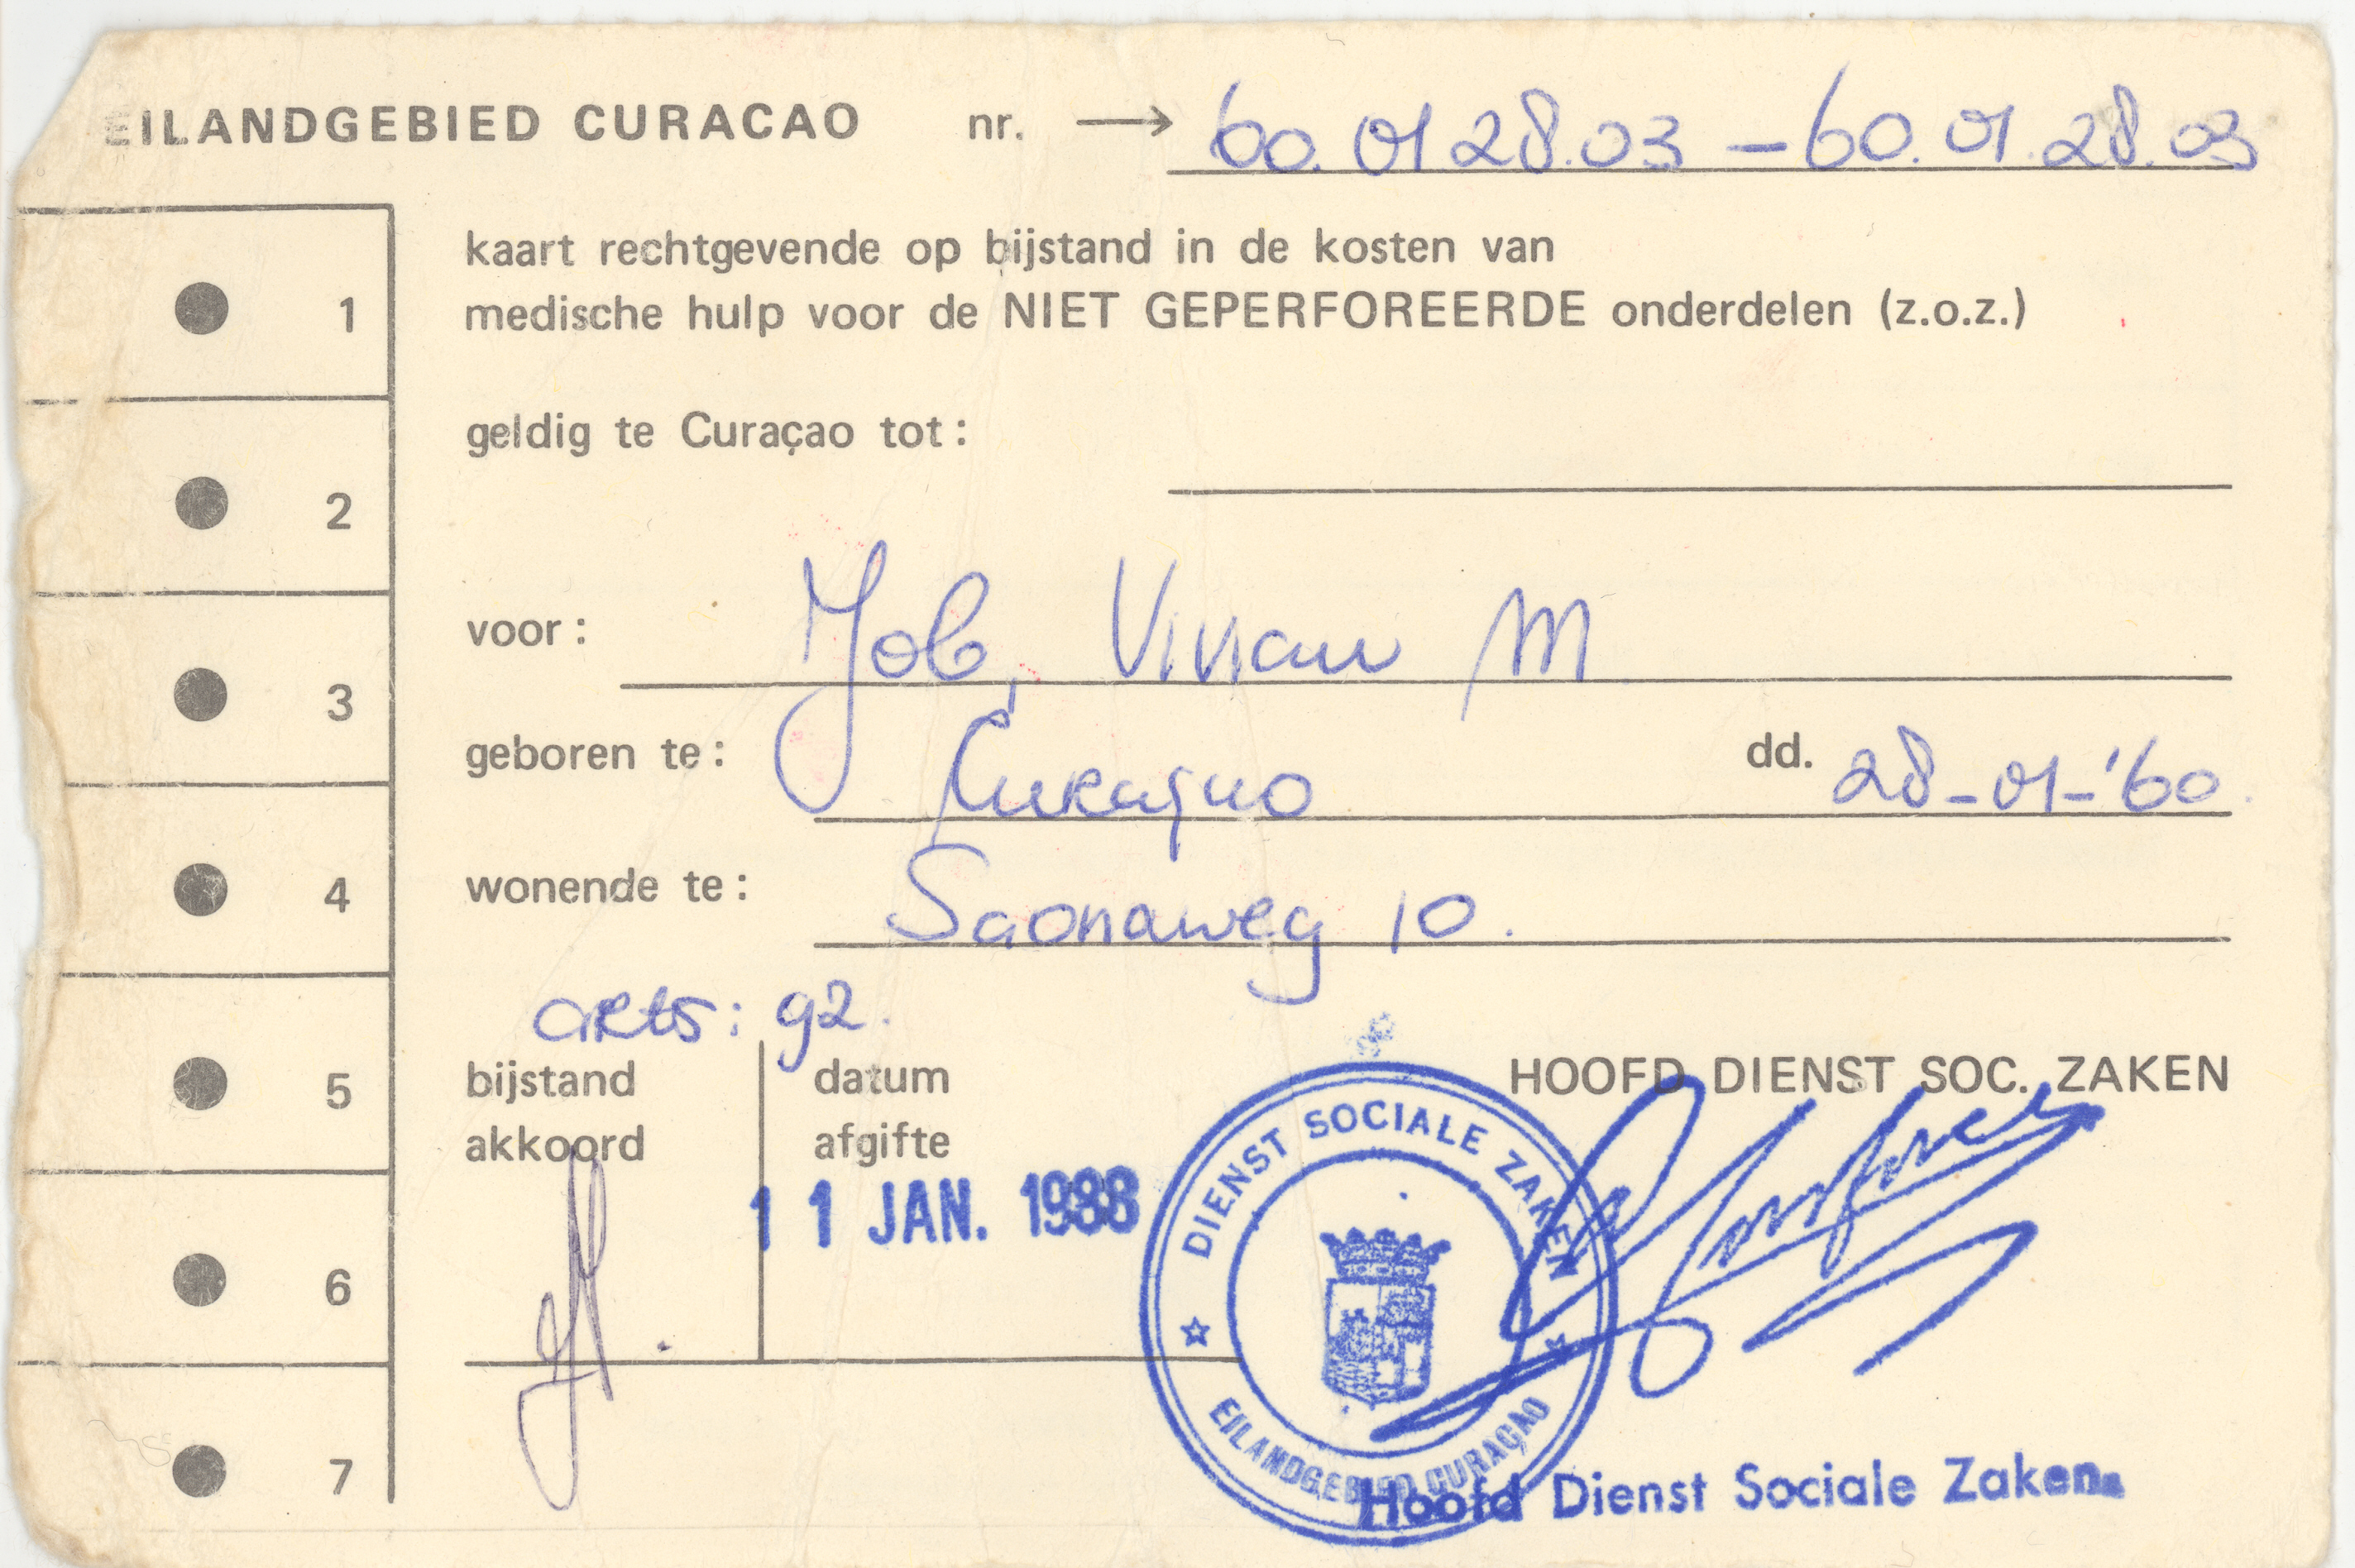 EILANDGEBIED CURACAO nr. → 60.01.28.03 – 60.01.28.03
kaart rechtgevende op bijstand in de kosten van
medische hulp voor de NIET GEPERFOREERDE onderdelen (z.o.z.)
geldig te Curaçao tot:
voor: Job, Vivian M
geboren te: Curaçao dd. 28-01-'60.
wonende te: Saonaweg 10.
arts: 92.
bijstand akkoord
datum afgifte
11 JAN. 1988
HOOFD DIENST SOC. ZAKEN
DIENST SOCIALE ZAKEN
EILANDGEBIED CURAÇAO
Hoofd Dienst Sociale Zaken.
1
2
3
4
5
6
7